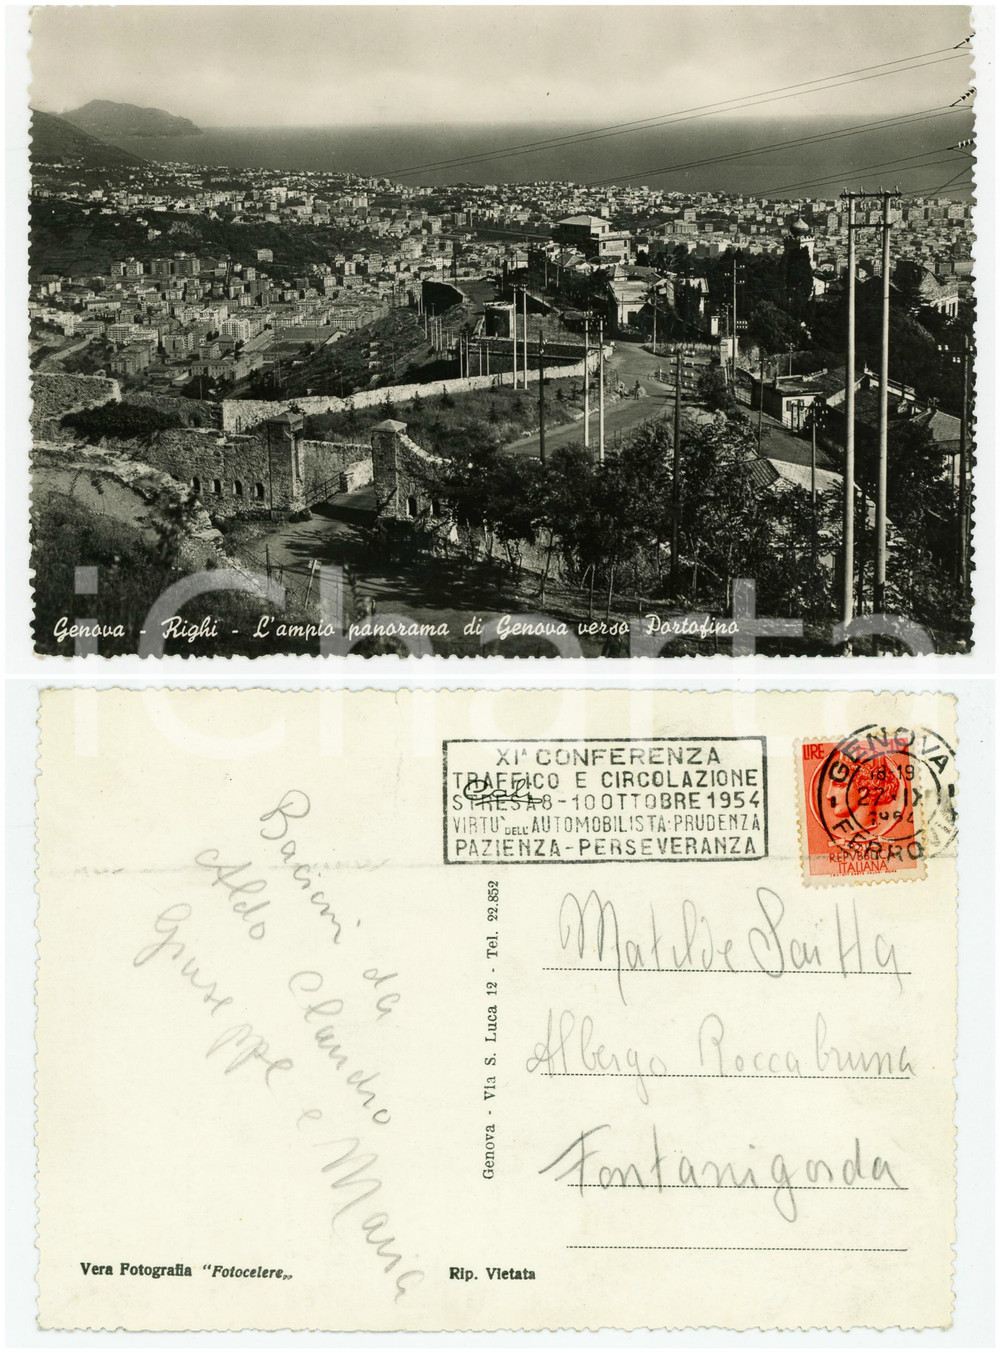 Genova - Righi - L'ampio panorama di Genova verso Portofino
iCharta
XIª CONFERENZA
TRAFFICO E CIRCOLAZIONE
STRESA 8-10 OTTOBRE 1954
VIRTU' DELL'AUTOMOBILISTA: PRUDENZA
PAZIENZA - PERSEVERANZA
LIRE
REPVBBLICA
ITALIANA
GENOVA
18-19
27-IX
1954
FERROVIA
Bacioni da
Aldo Claudio
Giuseppe e Maria
Genova - Via S. Luca 12 - Tel. 22.852
Matilde Saitta
Albergo Roccabruna
Fontanigorda
Vera Fotografia "Fotocelere„
Rip. Vietata